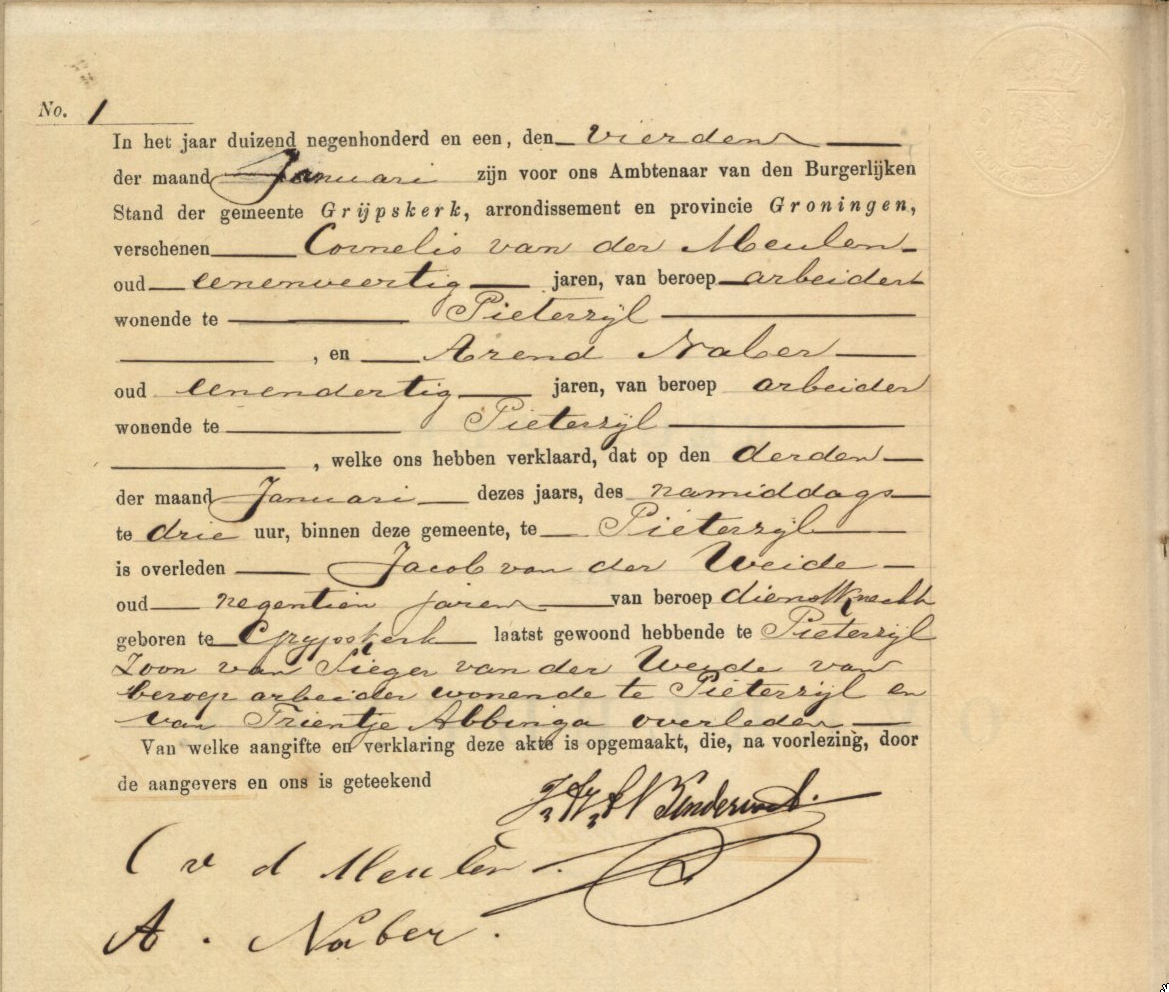 No. 1
In het jaar duizend negenhonderd en een, den vierden
der maand Januari zijn voor ons Ambtenaar van den Burgerlijken
Stand der gemeente Grijpskerk, arrondissement en provincie Groningen,
verschenen Cornelis van der Meulen
oud eenenveertig jaren, van beroep arbeider
wonende te Pieterzijl
, en Arend Naber
oud eenendertig jaren, van beroep arbeider
wonende te Pieterzijl
, welke ons hebben verklaard, dat op den derden
der maand Januari dezes jaars, des namiddags
te drie uur, binnen deze gemeente, te Pieterzijl
is overleden Jacob van der Weide
oud negentien jaren van beroep dienstknecht
geboren te Grijpskerk laatst gewoond hebbende te Pieterzijl
Zoon van Sieger van der Weide van
beroep arbeider wonende te Pieterzijl en
van Trientje Abbinga overleden
Van welke aangifte en verklaring deze akte is opgemaakt, die, na voorlezing, door
de aangevers en ons is geteekend
C v d Meulen
A. Naber.